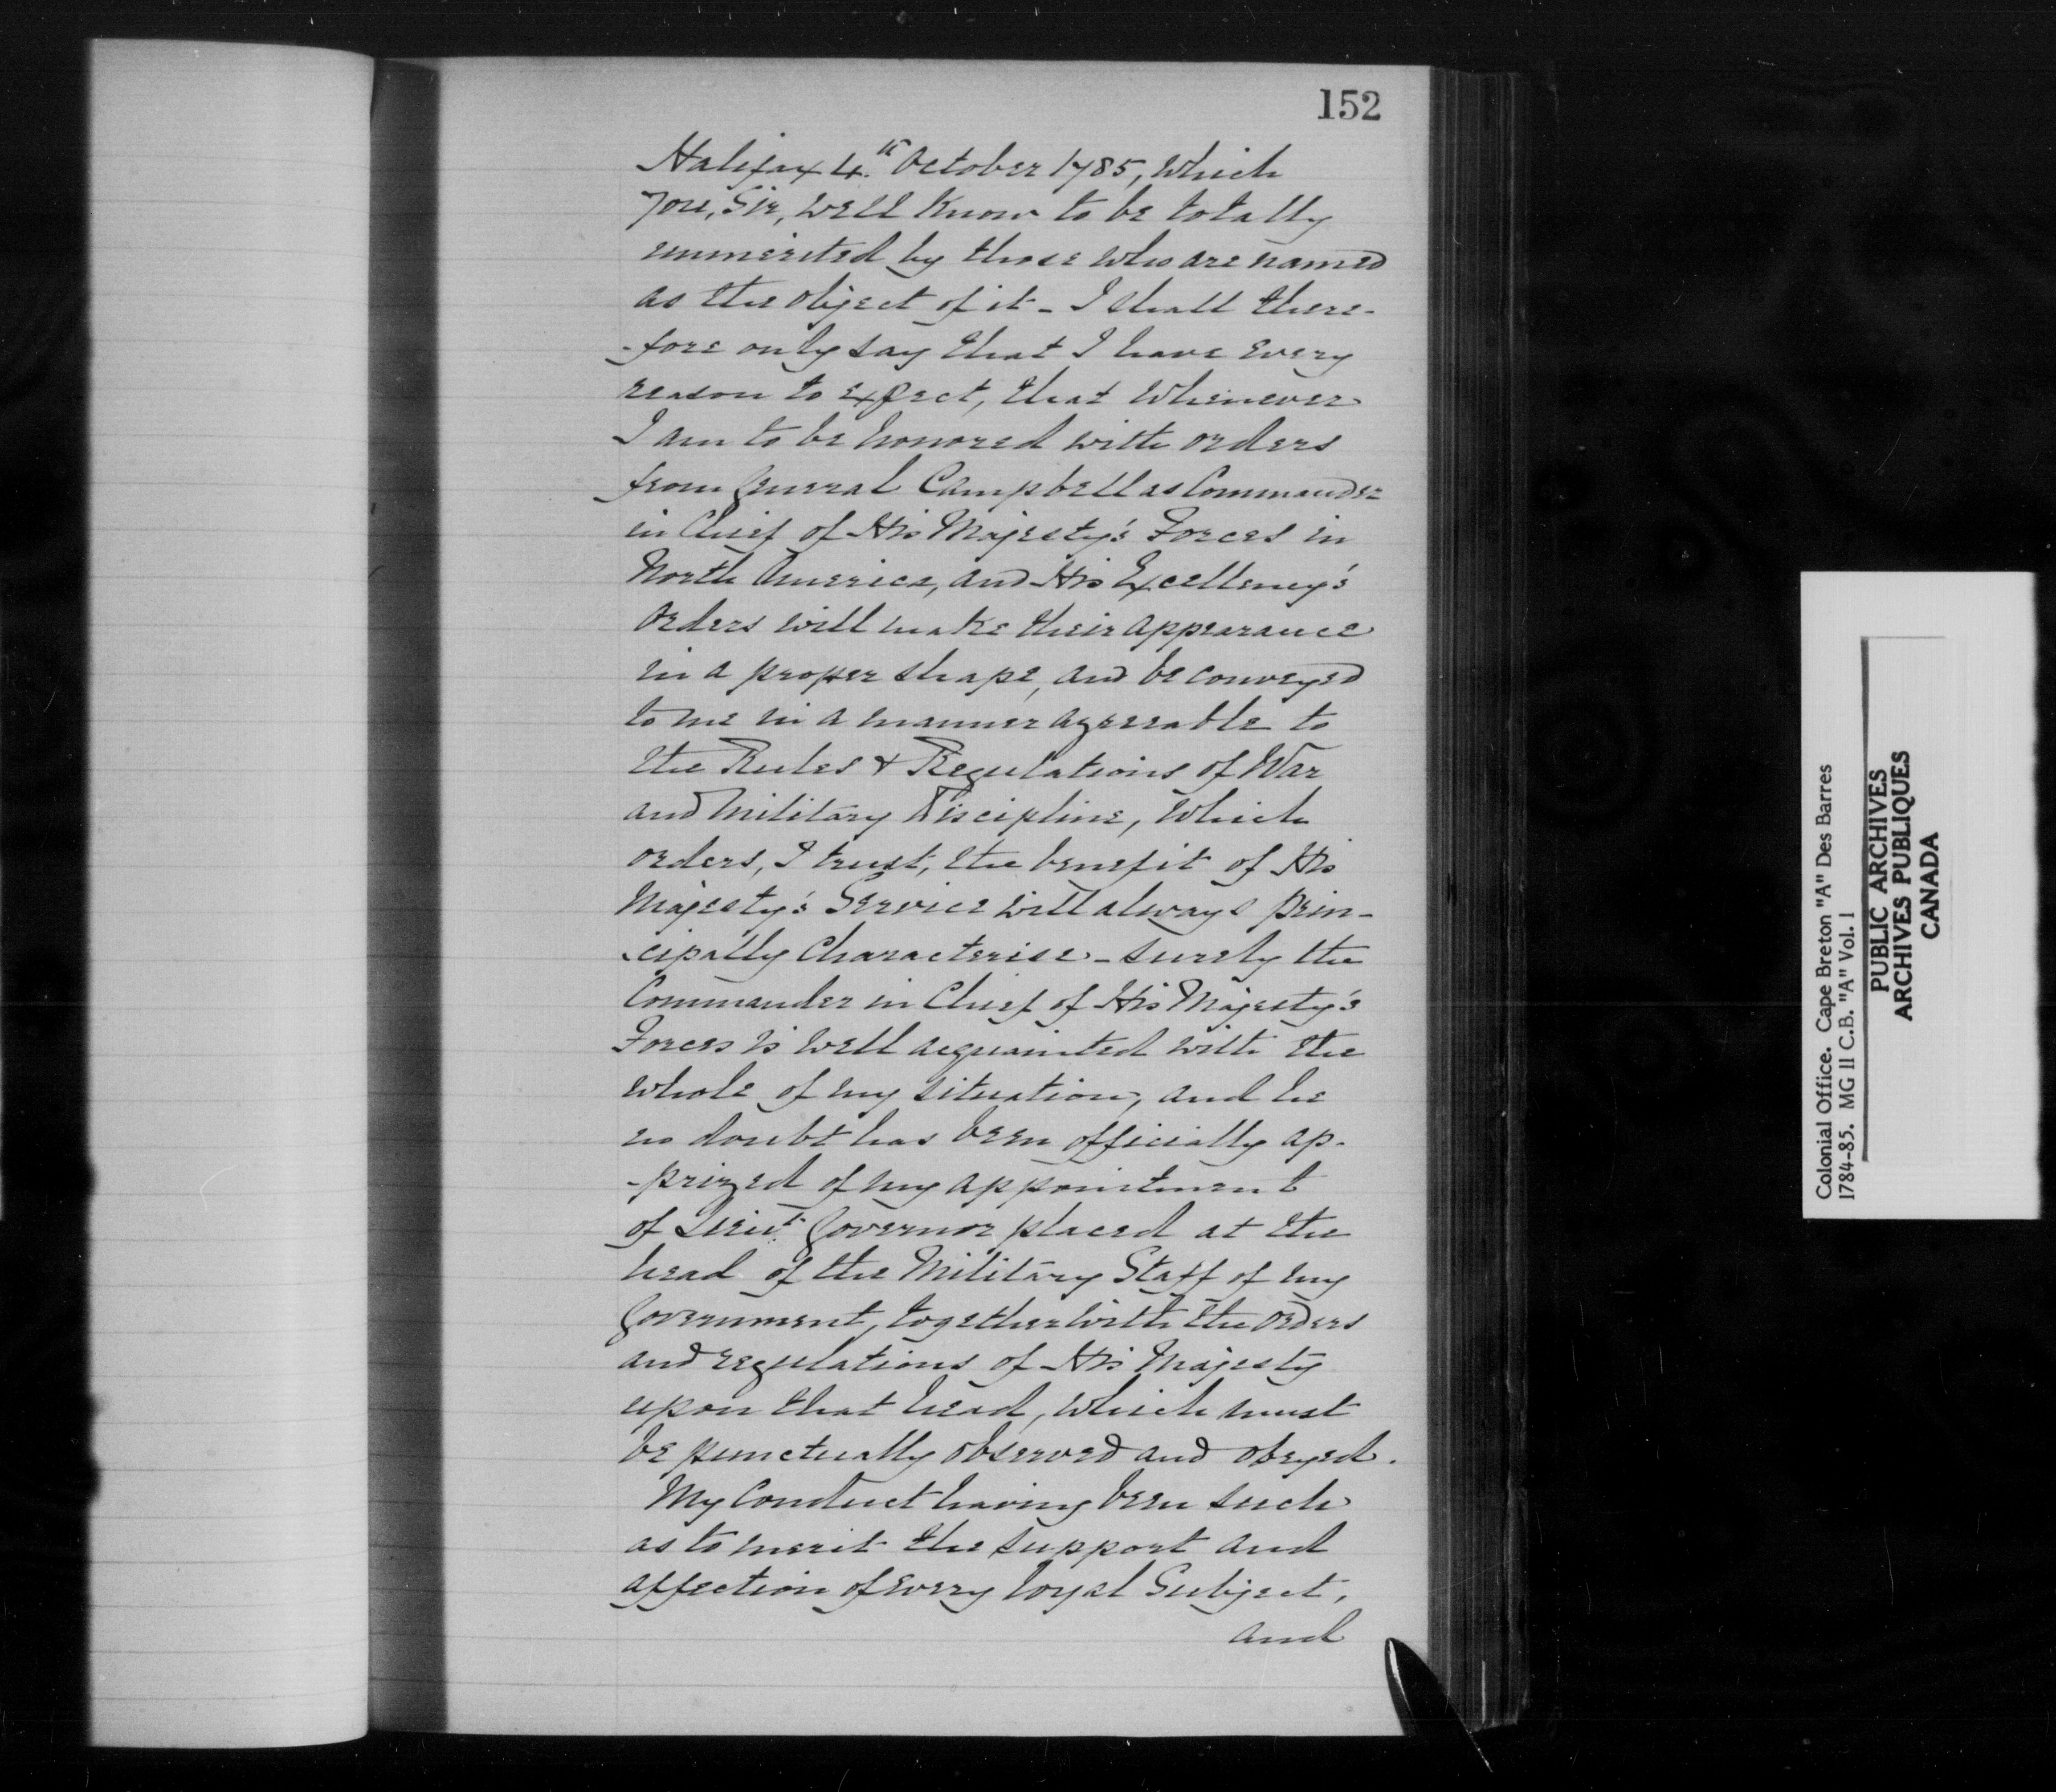 152
Halifax 4.th October 1785, which
You, Sir, well know to be totally
unmerited by those who are named
as the object of it - I shall there-
-fore only say that I have every
reason to expect, that whenever
I am to be honored with orders
from General Campbell as Commander
in Chief of His Majesty's Forces in
North America, and His Excellency's
orders will make their appearance
in a proper shape, and be conveyed
to me in a manner agreeable to
the Rules & Regulations of War
and Military Discipline, which
orders, I trust, the benefit of His
Majesty's Service will always prin-
-cipally Characterise - surely the
Commander in Chief of His Majesty's
Forces is well acquainted with the
whole of my situation, and he
no doubt has been officially ap-
-prized of my appointment
of Lieut. Governor placed at the
head of the Military Staff of my
Government, together with the orders
and regulations of His Majesty
upon that head, which must
be punctually observed and obeyed.
My Conduct having been such
as to merit the support and
affection of every loyal Subject,
and
Colonial Office. Cape Breton "A" Des Barres
1784-85. MG 11 C.B. "A" Vol. 1
PUBLIC ARCHIVES
ARCHIVES PUBLIQUES
CANADA